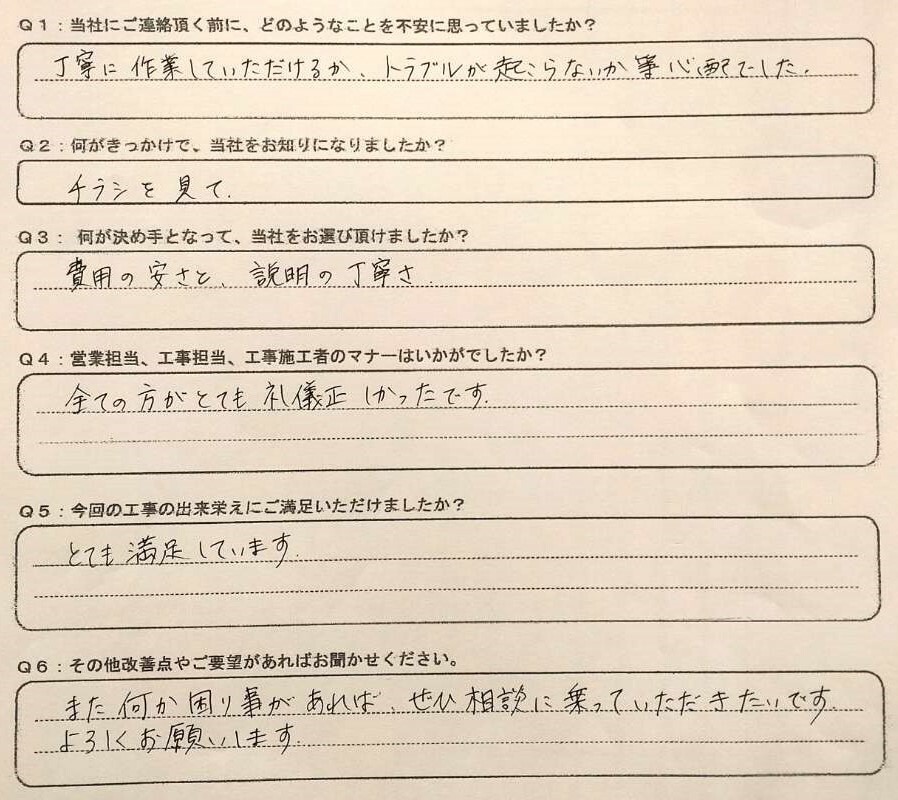 Q1：当社にご連絡頂く前に、どのようなことを不安に思っていましたか？
丁寧に作業していただけるか、トラブルが起こらないか等心配でした.
Q2：何がきっかけで、当社をお知りになりましたか？
チラシを見て.
Q3： 何が決め手となって、当社をお選び頂けましたか？
費用の安さと、説明の丁寧さ.
Q4：営業担当、工事担当、工事施工者のマナーはいかがでしたか？
全ての方がとても礼儀正しかったです.
Q5：今回の工事の出来栄えにご満足いただけましたか？
とても満足しています.
Q6：その他改善点やご要望があればお聞かせください。
また何か困り事があれば、ぜひ相談に乗っていただきたいです.
よろしくお願いします.